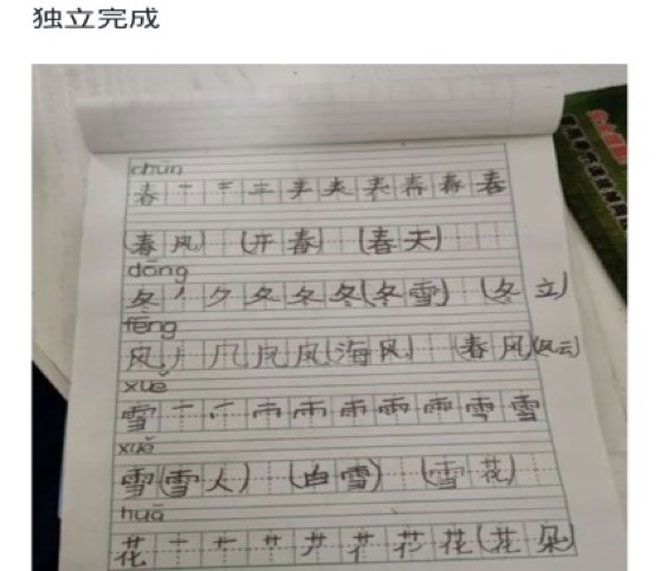 独立完成
chūn
春 一 二 三 𡗗 夫 表 春 春 春
(春风) (开春) (春天)
dōng
冬 丿 夕 夂 冬 冬 (冬雪) (冬立)
fēng
风 丿 几 风 风 (海风) (春风) (风云)
xuě
雪 雪
xuě
雪 (雪人) (白雪) (雪花)
huā
花 一 十 艹 花 (花朵)